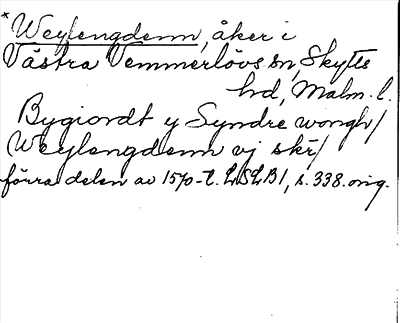 *Weylengdenn, åker i
Västra Vemmerlövs sn, Skytts
hd, Malm. l.
Bygiordt y Syndre wongh/
Weylengdenn vj skr/
förra delen av 1570-t. LSLB1, s. 338. orig.